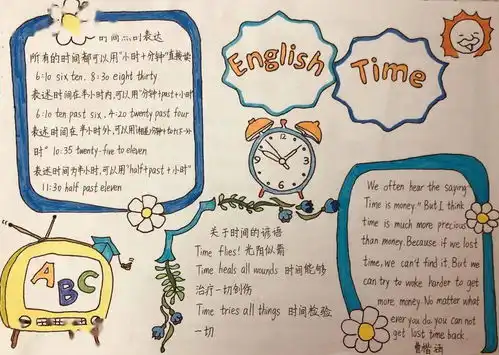 时间点的表达
所有的时间都可以用"小时+分钟"直接读
6:10 six ten. 8:30 eight thirty
表述时间在半小时内,可以用"分钟+past+小时"
6:10 ten past six. 4:20 twenty past four
表述时间在半小时外,可以用
时" 10:35 twenty-five to eleven
表述时间为半小时,可以用"half+past+小时"
11:30 half past eleven
English
Time
ABC
关于时间的谚语
Time flies! 光阴似箭
Time heals all wounds 时间能够
治疗一切创伤
Time tries all things 时间检验
一切
We often hear the saying
"Time is money." But I think
time is much more precious
than money. Because if we lost
time, we can't find it. But we
can try to woke harder to get
more money. No matter what
ever you do, you can not
get lost time back.
曾楷涵